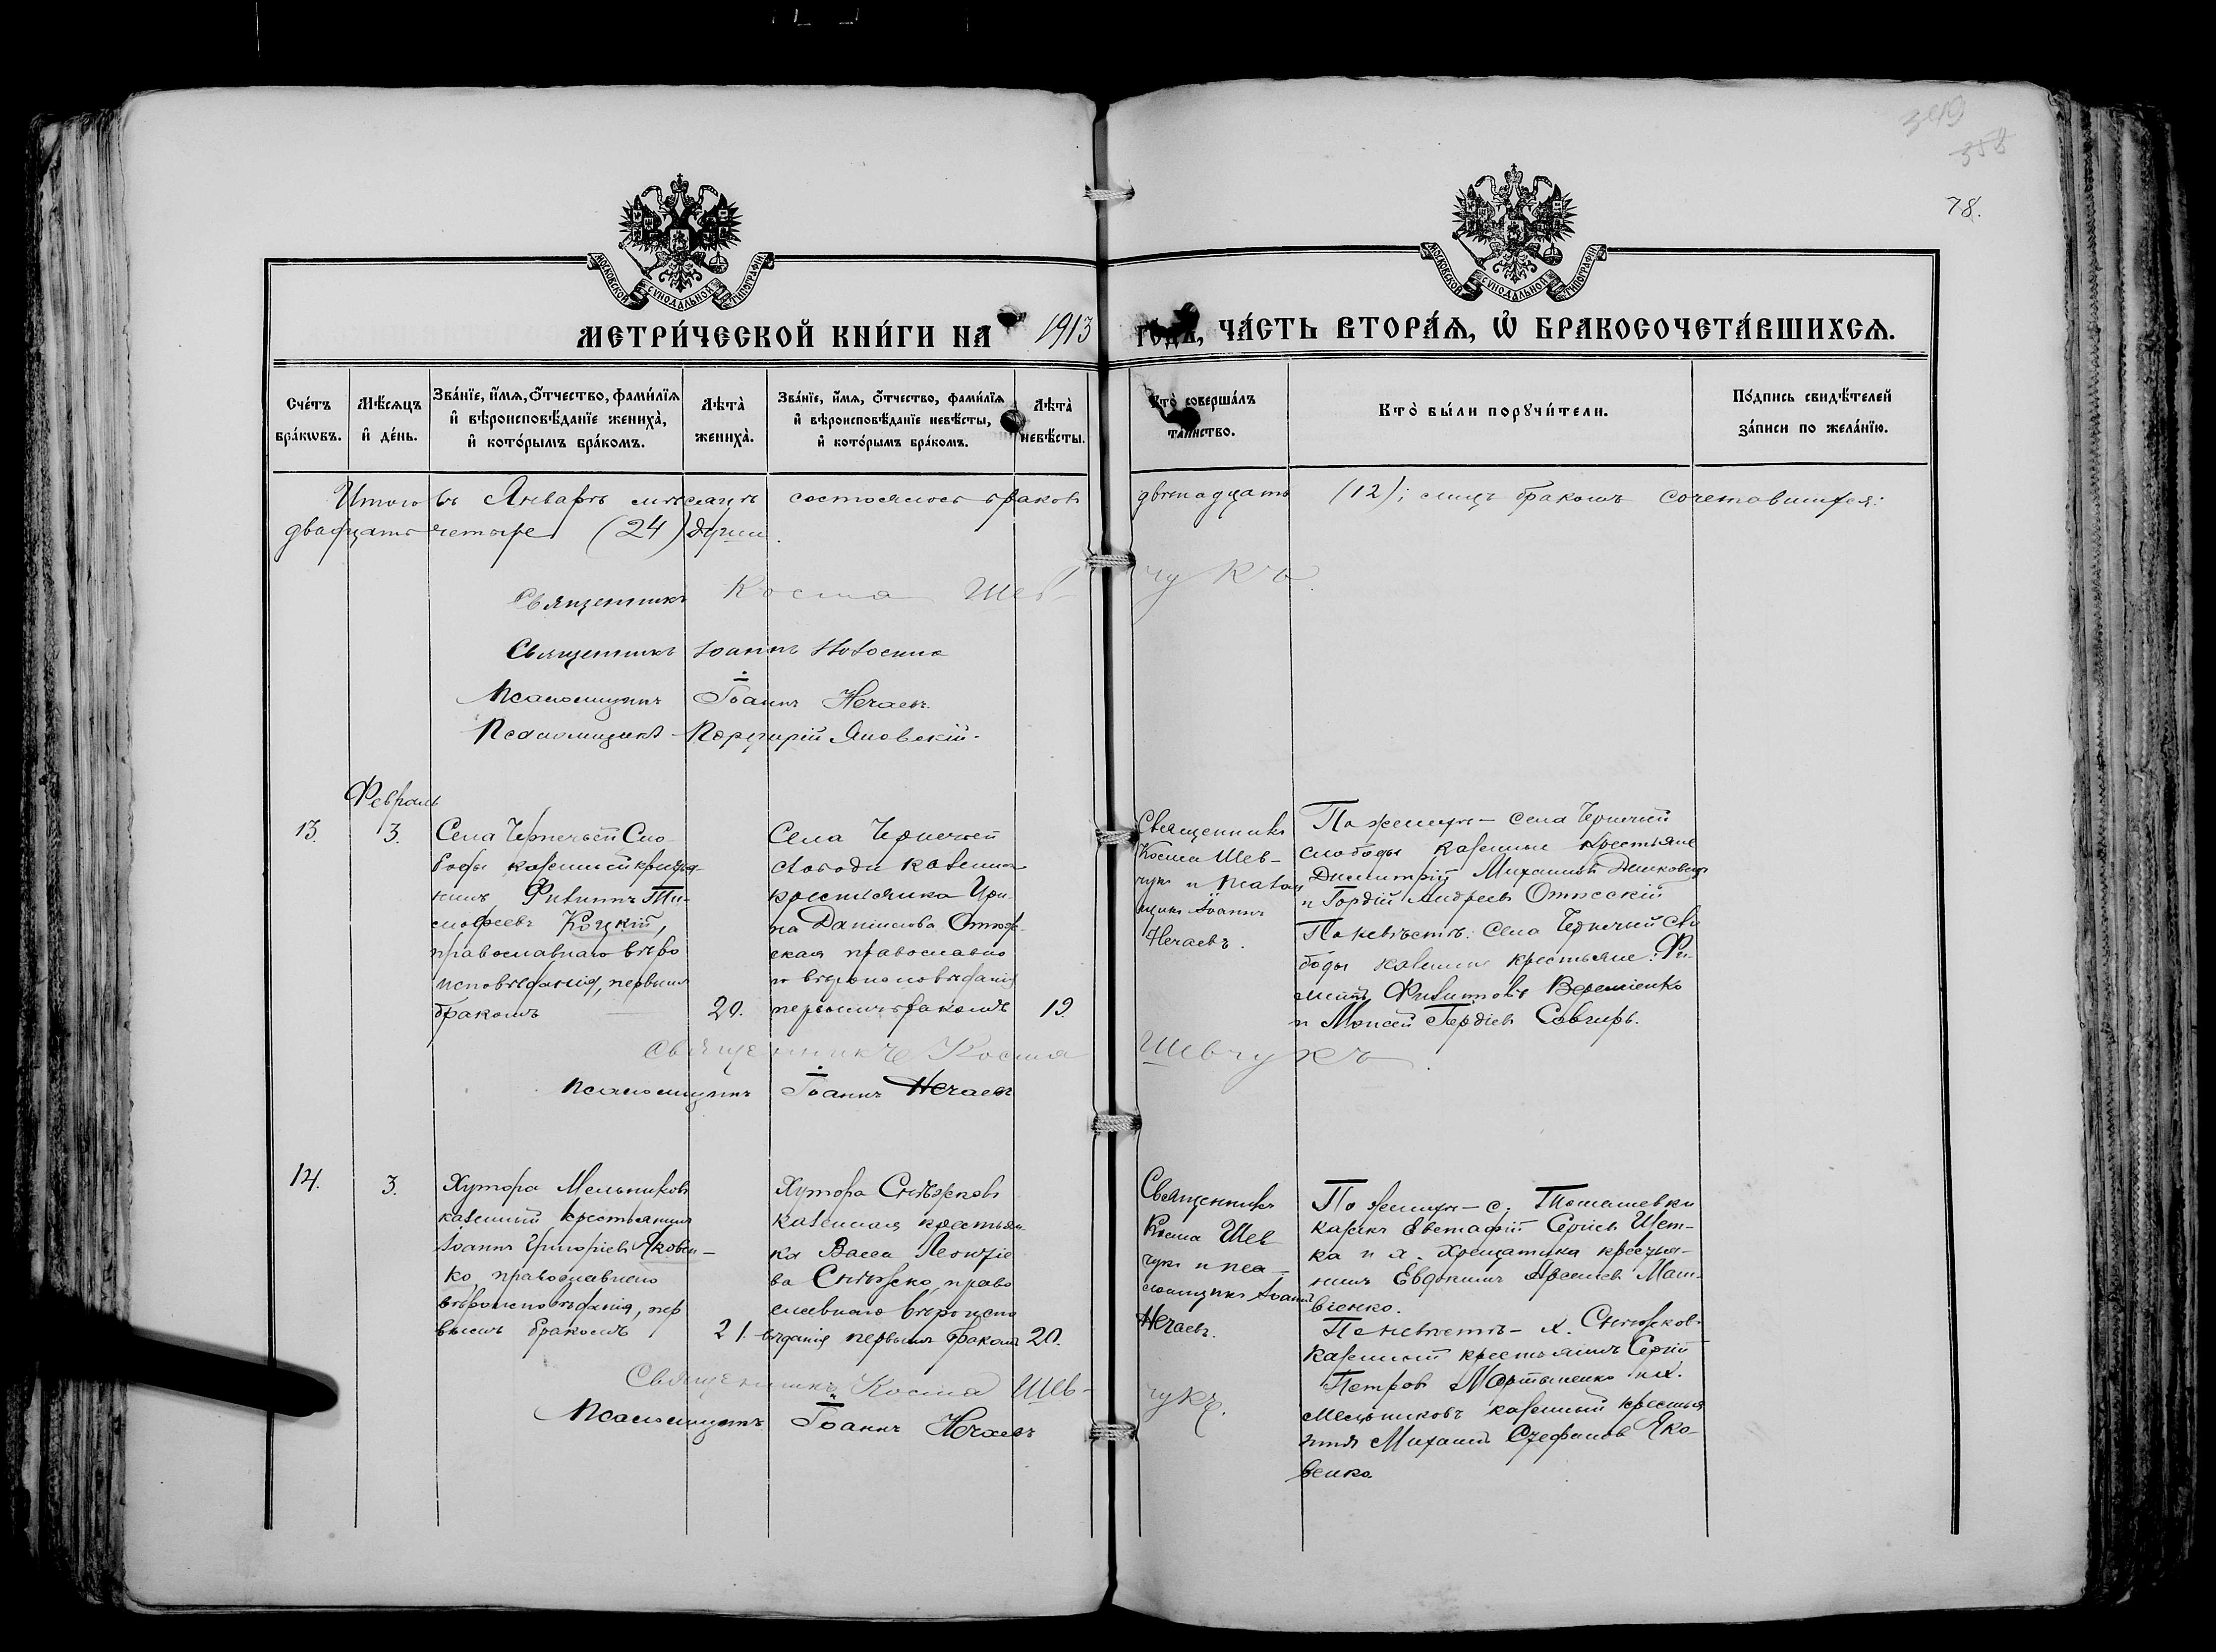 349
358
78.
МОСКОВСКОЙ СУНОДАЛЬНОЙ ТИПОГРАФІИ
МОСКОВСКОЙ СУНОДАЛЬНОЙ ТИПОГРАФІИ
МЕТРИ́ЧЕСКОЙ КНИ́ГИ НА 1913 ГО́ДЪ, ЧА́СТЬ ВТОРА́Я, Ѡ҆ БРАКОСОЧЕТА́ВШИХСЯ.
Сче́тъ бра́кѡвъ.
Мѣ́сяцъ и҆ де́нь.
Зва́нїе, и҆́мя, ѻ҆́тчество, фами́лїя
и҆ вѣроисповѣ́данїе жениха̀,
и҆ кото́рымъ бра́комъ.
Лѣта̀ жениха̀.
Зва́нїе, и҆́мя, ѻ҆́тчество, фами́лїя
и҆ вѣроисповѣ́данїе невѣ́сты,
и҆ кото́рымъ бра́комъ.
Лѣта̀ невѣ́сты.
Кто̀ соверша́лъ
та́инство.
Кто̀ бы́ли порꙋчи́тели.
По́дпись свидѣ́телей
за́писи по жела́нїю.
Итого въ Январѣ мѣсяцѣ состоялось браковъ двѣнадцать (12); лицъ бракомъ сочетавшихся:
двадцать четыре (24) души.
Священникъ Косма Шевчукъ.
Священникъ Іоаннъ
Псаломщикъ Іоаннъ Нечаевъ.
Псаломщикъ Порфирій Яновскій.
Февраль
13.
3.
Села Чернечьей Сло
боды казенный крестья
нинъ Филиппъ Ти
моѳеевъ Коцкій,
православнаго вѣро
исповѣданія, первымъ
бракомъ
20.
Села Чернечьей
слободы казенная
крестьянка Ири
на Даніилова
православна
го вѣроисповѣданія
первымъ бракомъ
19.
Священникъ
Косма Шев-
чукъ и псалом
щикъ Іоаннъ
Нечаевъ.
По женихѣ — села Чернечьей
слободы казенные крестьяне
Димитрій Михаиловъ
и Гордій Андреевъ
По невѣстѣ: села Чернечьей сло
боды казенные крестьяне:
Филипповъ Веремієнко
и Моисей Гордіевъ
Священникъ Косма Шевчукъ.
Псаломщикъ Іоаннъ Нечаевъ
14.
3.
Хутора Мельниковъ
казенный крестьянинъ
Іоаннъ Григоріевъ Яковен-
ко, православнаго
вѣроисповѣданія, пер
вымъ бракомъ
21.
Хутора Снѣжковъ
казенная крестьян
ка Васса Леонтіе
ва Снѣжко, право
славнаго вѣроиспо
вѣданія первымъ бракомъ
20.
Священникъ
Косма Шев
чукъ и пса-
ломщикъ Іоаннъ
Нечаевъ.
По женихѣ — с. Томашевки
казакъ Евстафій Сергіевъ Щет-
ка и х. Хрещатика крестья-
нинъ Евдокимъ Матвіенко.
По невѣстѣ — х. Снѣжковъ
казенный крестьянинъ Сергій
Петровъ Мартыненко и х.
Мельниковъ казенный крестья
нинъ Михаилъ Стефановъ Яко-
венко.
Священникъ Косма Шевчукъ.
Псаломщикъ Іоаннъ Нечаевъ